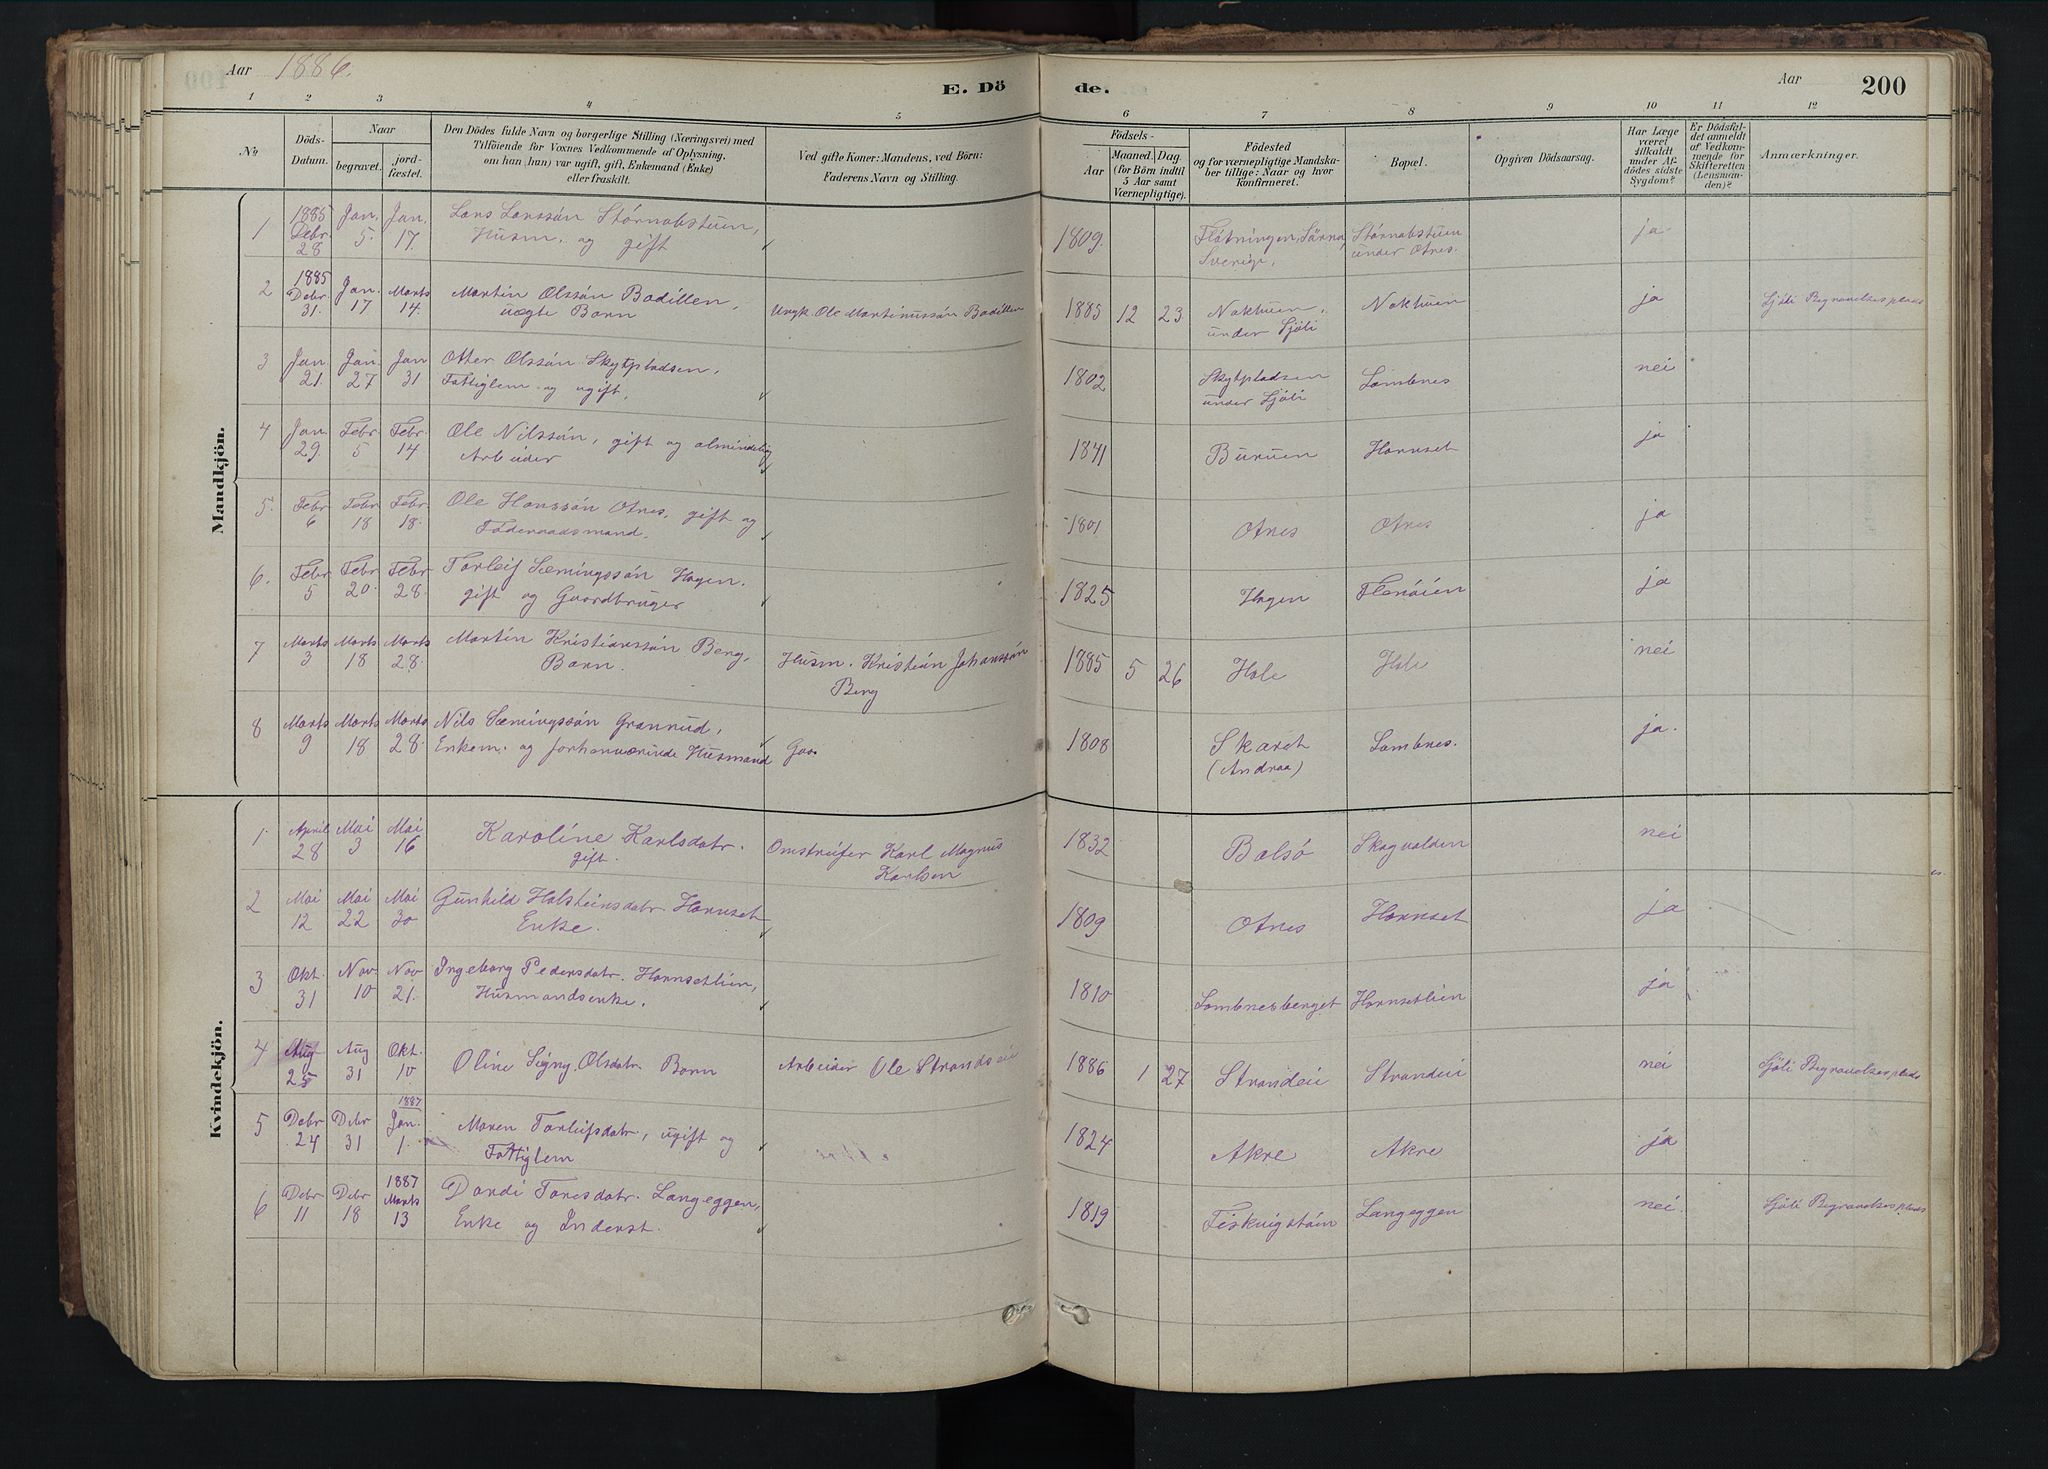 Aar 1886.
E. Dö
de.
Aar
200
1 2 3 4 5 6 7 8 9 10 11 12
No
Döds-
Datum.
Naar
begravet.
jord-
fæstet.
Den Dödes fulde Navn og borgerlige Stilling (Næringsvei) med
Tilföiende for Voxnes Vedkommende af Oplysning,
om han (hun) var ugift, gift, Enkemand (Enke)
eller fraskilt.
Ved gifte Koner: Mandens, ved Börn:
Faderens Navn og Stilling.
Födsels-
Aar
Maaned. Dag
(for Börn indtil
5 Aar samt
Værnepligtige).
Födested
og for værnepligtige Mandska-
ber tillige: Naar og hvor
konfirmeret.
Bopæl.
Opgiven Dödsaarsag.
Har Læge
været
tilkaldt
under Af-
dödes sidste
Sygdom?
Er Dödsfal-
det anmeldt
af Vedkom-
mende for
Skifteretten
(Lensman-
den)?
Anmærkninger.
Mandkjön.
1 1885 Debr. 28 Jan. 5. Jan. 17. Lars Larssön Störnabstuen,
Husm. og gift 1809. Flötningen, Särna, Sverige. Störnabstuen under Otnes. ja
2 1885 Debr. 31. Jan. 17 Marts 14. Martin Olssön Bodillen,
uægte Barn Ungk. Ole Martinussön Bodillen 1885 12 23 Noktuen, under Sjöli Noktuen ja Sjöli Begravelsesplads
3 Jan 21. Jan 27 Jan 31 Otter Olssön Skytpladsen,
Fattiglem og ugift. 1802 Skytpladsen under Sjöli Lombnes nei
4 Jan. 29 Febr. 5 Febr. 14 Ole Nilssön, gift og almindelig
Arbeider 1841 Buruen Hornset ja
5. Febr 6 Febr 18 Febr 18. Ole Hanssön Otnes, gift og
Föderaadsmand. 1801 Otnes Otnes ja
6. Febr 5 Febr 20. Febr 28. Torleif Sæmingssön Hagen,
gift og Gaardbruger 1825 Hagen Flenöien ja
7 Marts 3 Marts 18 Marts 28. Martin Kristianssön Berg,
Barn. Husm. Kristian Johanssön
Berg 1885 5 26 Hole Hole nei
8 Marts 9 Marts 18 Marts 28. Nils Sæmingssön Grannud,
Enkem. og forhenværende Husmand Gaa 1808 Skaret (Andraa) Lombnes. ja.
Kvindekjön.
1. April 28 Mai 3 Mai 16 Karoline Karlsdatr.
gift. Omstreifer Karl Magnus
Karlsen 1832 Bolsö Skogvolden nei
2 Mai 12 Mai 22 Mai 30 Gunhild Holsteinsdatr. Hornset
Enke. 1809 Otnes Hornset ja
3 Okt. 31 Nov. 10 Nov 21. Ingeborg Pedersdatr. Hornsetlien,
Husmandsenke. 1810 Lombnesberget Hornsetlien ja
4 Aug 25 Aug 31 Okt. 10 Oline Signy Olsdatr. Barn Arbeider Ole Strandeie 1886 1 27 Strandeie Strandeie nei Sjöli Begravelsesplads
5 Debr 24 Debr 31 1887 Jan. 1. Maren Torleifsdatr, ugift og
Fattiglem 1824 Akre Akre ja
6 Debr 11 Debr 18 1887 Marts 13 Dordi Toresdatr. Langeggen,
Enke og Inderst. 1819 Fiskvigstöin Langeggen nei. Sjöli Begravelsesplads